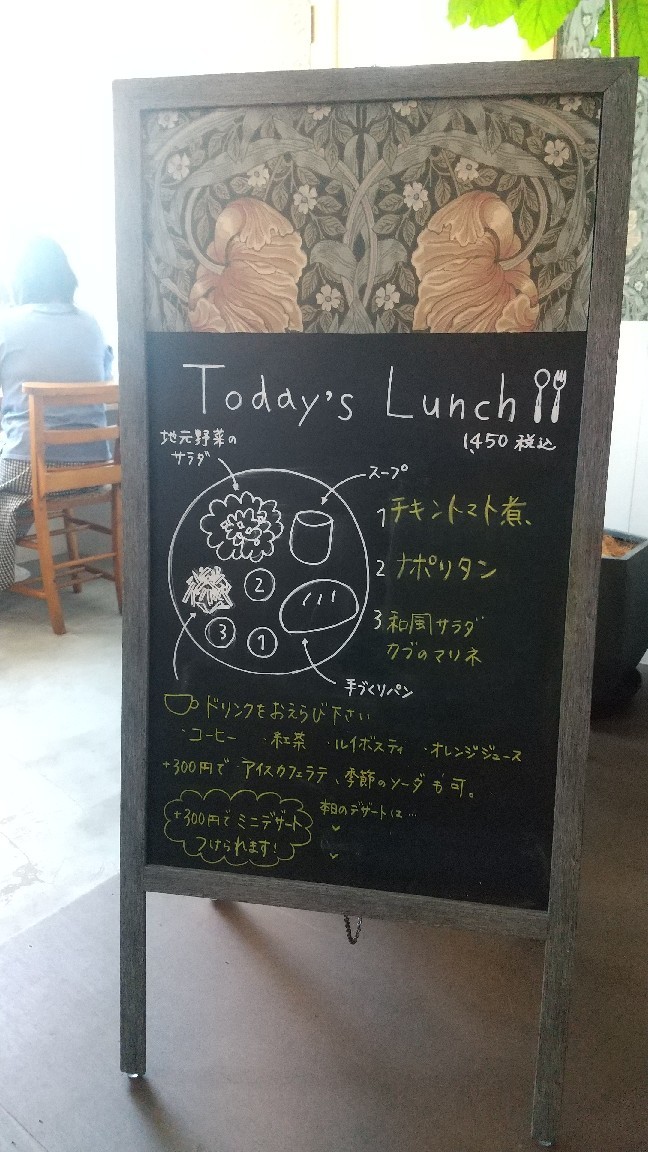 Today's Lunch
1,450 税込
地元野菜の
サラダ
スープ
1 チキントマト煮、
2 ナポリタン
3 和風サラダ
カブのマリネ
2
3
1
手づくりパン
ドリンクをおえらび下さい
・コーヒー ・紅茶 ・ルイボスティ ・オレンジジュース
+300円で アイスカフェラテ、季節のソーダ も可。
+300円で ミニデザート
つけられます!
本日のデザートは…